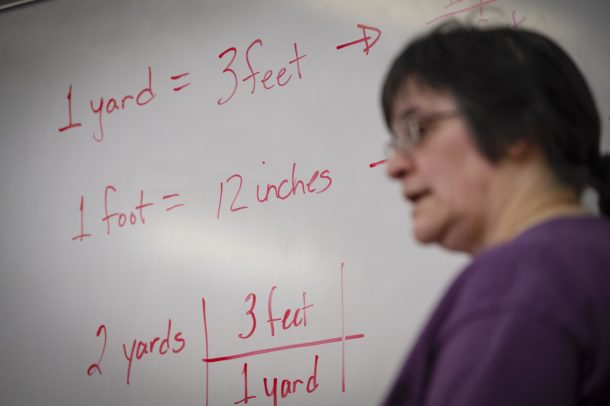 1 yard = 3 feet →
1 foot = 12 inches
2 yards | 3 feet |
1 yard